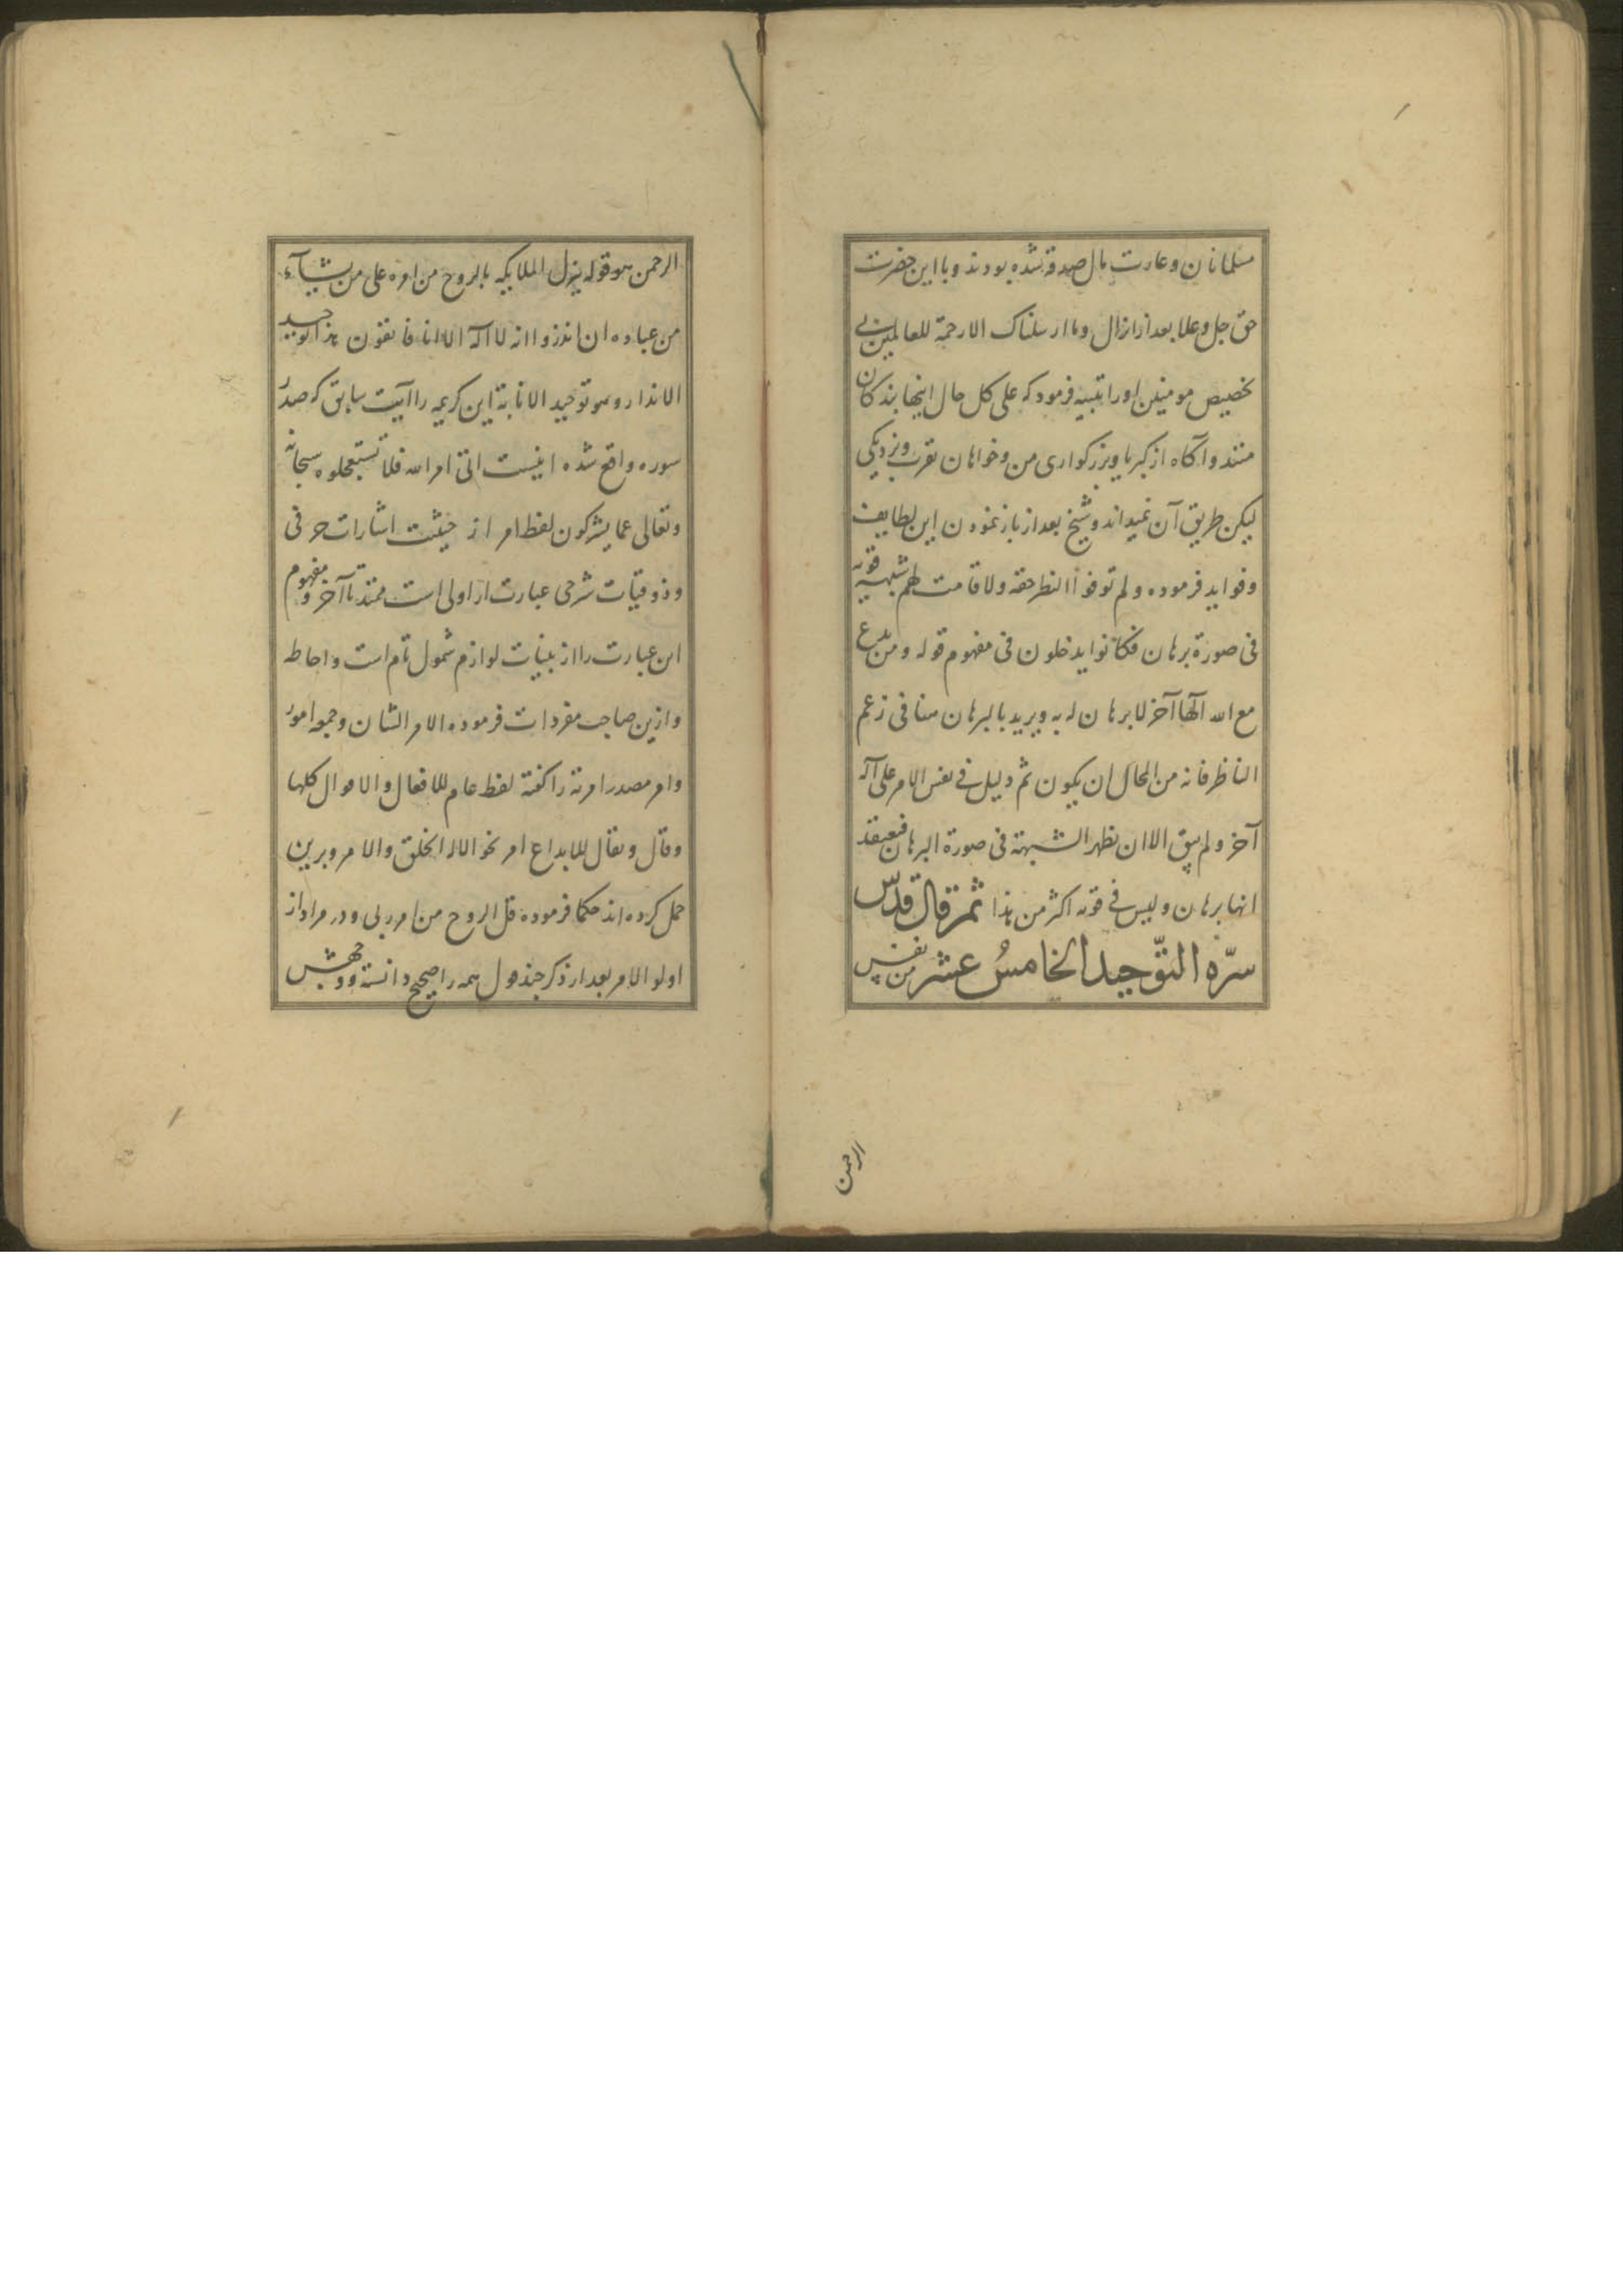 مسلمانان و غارت مال صدقه شده بودند و با این حضرت
حق جل و علا بعد از انزال و ما ارسلناک الا رحمة للعالمین بی
تخصیص مومنین او را تنبیه فرمود که علی کل حال اینها بندکان
منند و آکاه از کبریا و بزرکواری من و خواهان تقرب و نزدیکی
لیکن طریق آن نمیدانند و شیخ بعد از باز نمودن این لطایف
و فواید فرموده و لم توفوا النظر حقه و لا قامت لهم شبهة قویة
فی صورة برهان فکانوا یدخلون فی مفهوم قوله و من یدع
مع الله آلها آخر لا برهان له به و یرید بالبرهان هنا فی زعم
الناظر فانه من المحال ان یکون ثم دلیل فی نفس الامر علی آله
آخر و لم یبق الا ان تظهر الشبهة فی صورة البرهان فیعتقد
انها برهان و لیس فی قوته اکثر من هذا ثم قال قدّس
سرّه التوّحید الخامسُ عشر من نفس
الرحمن
الرحمن هو قوله ینزل الملایکه بالروح من امره علی من یشآء
من عباده ان انذروا انه لا آله الا انا فاتقون هذا توحید
الانذار و هو توحید الانابة این کریمه را آیت سابق که صدر
سوره واقع شده اینست اتی امر الله فلا تستعجلوه سبحانه
و تعالی عما یشرکون لفظ امر از حیثیت اشارات حرفی
و ذوقیات شرحی عبارت از اولی است ممتد تا آخر و مفهوم
این عبارت را از بینات لوازم شمول تام است و احاطه
و ازین صاحب مفردات فرموده الامر الشان و جمعه امور
و امر مصدر امرته را کفته لفظ عام للافعال و الاقوال کلها
و قال و یقال للابداع امر نحو الا له الخلق و الامر و برین
حمل کرده اند حکما فرموده قل الروح من امر ربی و در مراد از
اولو الامر بعد از ذکر چند قول همه را صحیح دانسته و وجهش